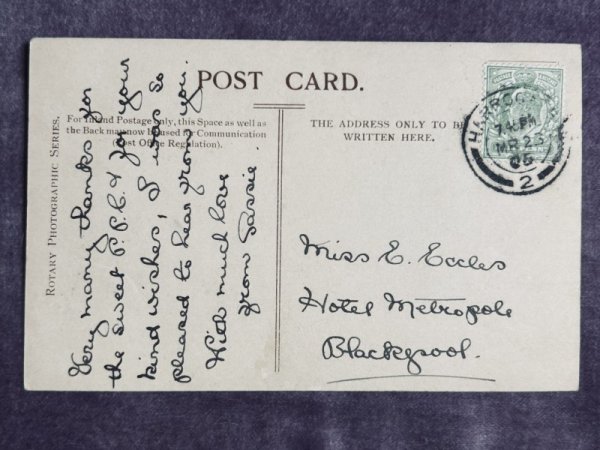 POST CARD.
For Inland Postage only, this Space as well as
the Back may now be used for Communication
(Post Office Regulation).
THE ADDRESS ONLY TO BE
WRITTEN HERE.
ROTARY PHOTOGRAPHIC SERIES.
Very many thanks for
the sweet P.P.C. & for your
kind wishes, I was so
pleased to hear from you.
With much love
from Sassie.
Miss E. Eccles
Hotel Metropole
Blackpool.
HARROGATE
MR 23
05
2